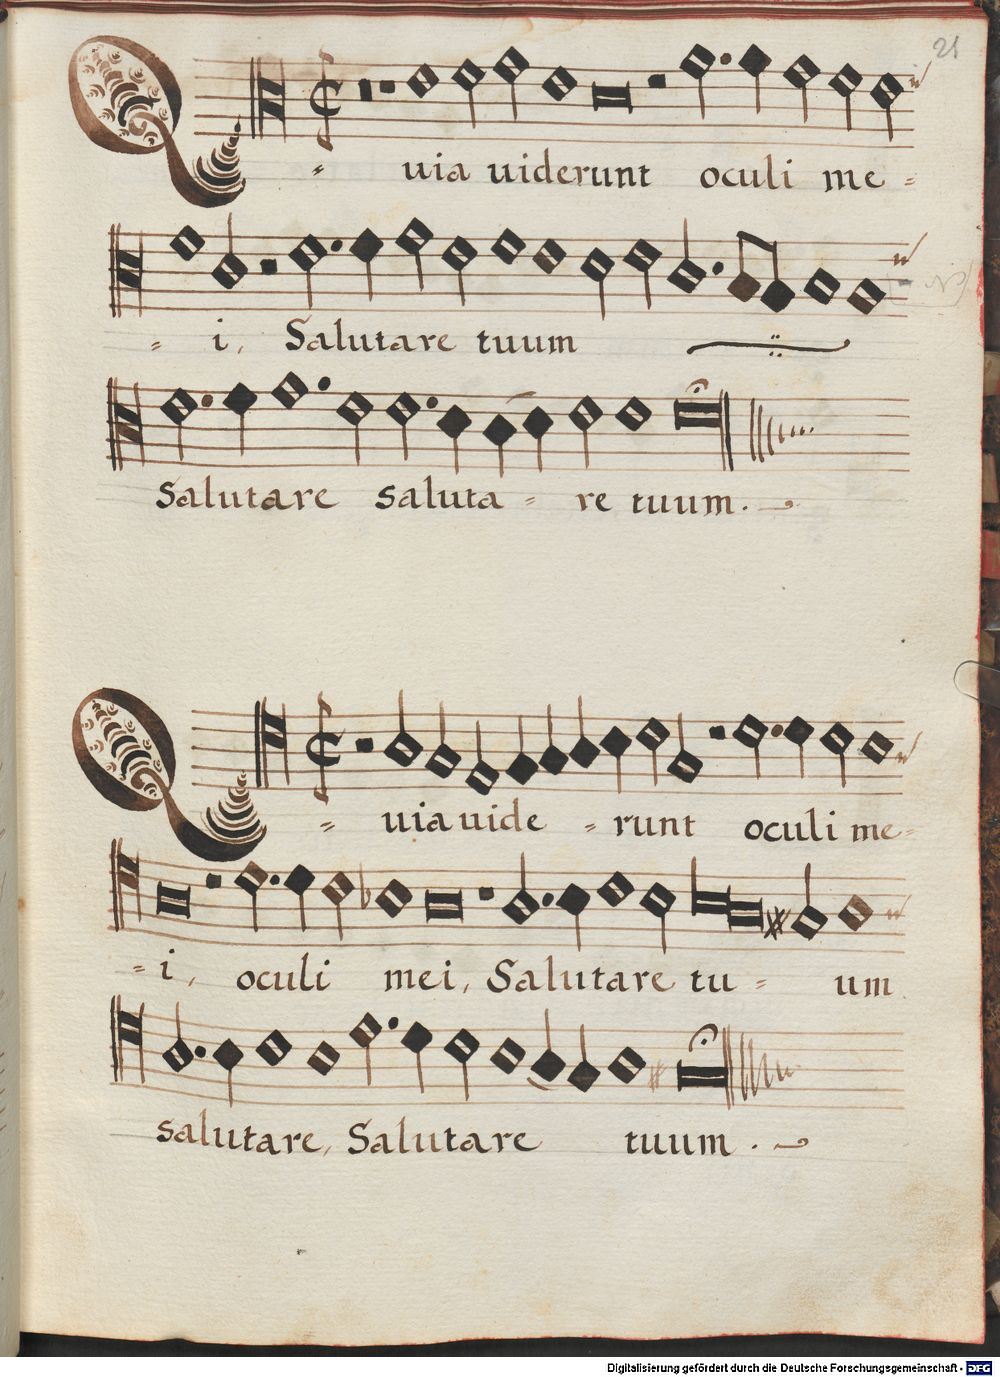 21
Quia uiderunt oculi me=
= i, Salutare tuum
Salutare saluta = re tuum.
Quia uide = runt oculi me=
= i, oculi mei, Salutare tu = um
salutare, Salutare tuum.
Digitalisierung gefördert durch die Deutsche Forschungsgemeinschaft - DFG